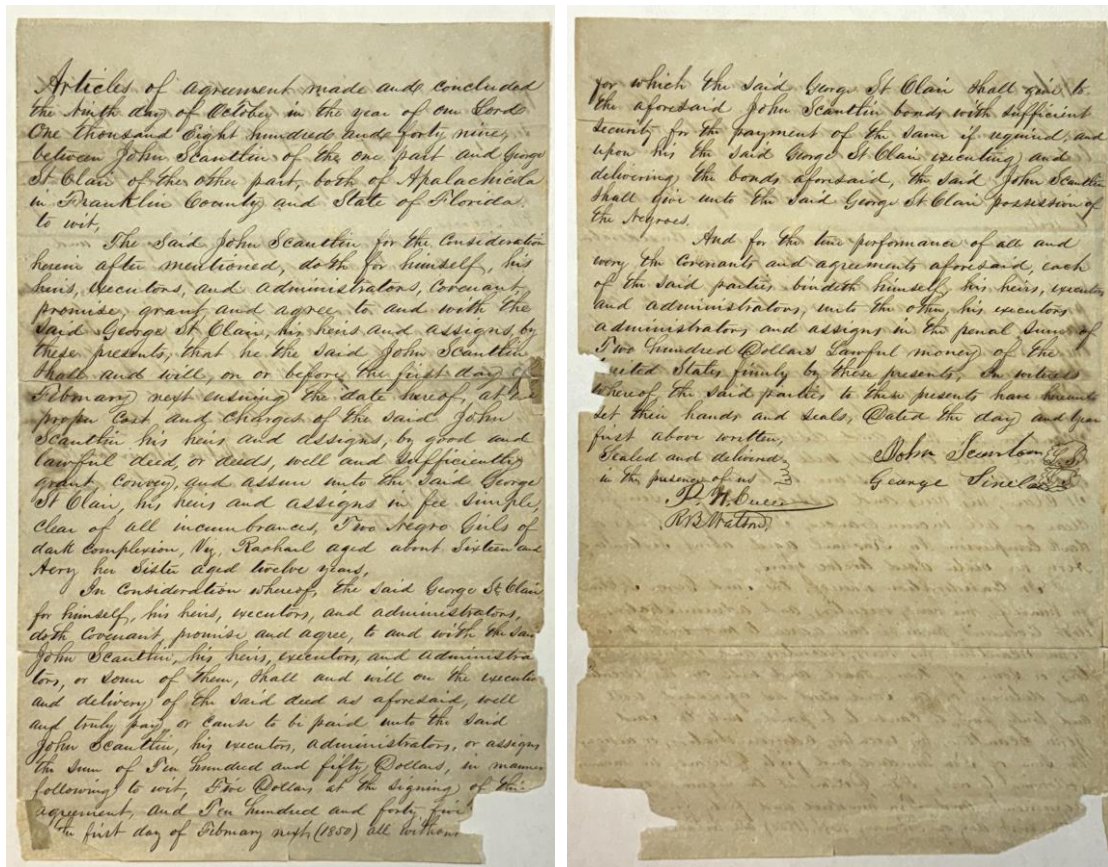 Articles of agreement made and concluded
the Ninth day of October in the year of our Lord
One thousand Eight hundred and forty nine,
between John Scantlin of the one part and George
St Clair of the other part, both of Apalachicola
in Franklin County and State of Florida
to wit,
The Said John Scantlin for the consideration
herein after mentioned, doth for himself, his
heirs, executors, and administrators, covenant,
promise, grant and agree, to and with the
said George St Clair, his heirs and assigns, by
these presents, that he the said John Scantlin
shall and will, on or before the first day of
February next ensuing the date hereof, at the
proper Cost and Charges of the said John
Scantlin his heirs and assigns, by good and
lawful deed, or deeds, well and sufficiently
grant, Convey, and assure unto the said George
St Clair, his heirs and assigns in fee simple,
clear of all incumbrances, Two Negro Girls of
dark complexion, Viz, Rachael aged about Sixteen and
Avery her Sister aged twelve years,
In Consideration whereof, the said George St Clair
for himself, his heirs, executors, and administrators,
doth covenant, promise and agree, to and with the said
John Scantlin, his heirs, executors, and administra
tors, or some of them, shall and will on the execution
and delivery of the said deed as aforesaid, well
and truly pay, or cause to be paid unto the said
John Scantlin, his executors, administrators, or assigns
the sum of Ten hundred and fifty Dollars, in manner
following to wit, Five Dollars at the signing of this
agreement, and Ten hundred and forty five
first day of February next, (1850) all without
for which the said George St Clair shall give to
the aforesaid John Scantlin bonds with sufficient
security for the payment of the same if required, and
upon his the said George St Clair executing and
delivering the bonds aforesaid, the said John Scantlin
shall give unto the said George St Clair possession of
the Negroes.
And for the true performance of all and
every the Covenants and agreements aforesaid, each
of the said parties bindeth himself, his heirs, executors
and administrators, unto the other, his executors
administrators and assigns in the penal sum of
Two hundred Dollars Lawful money of the
United States firmly by these presents, In witness
whereof, the said parties to these presents have hereunto
set their hands and seals, Dated the day and year
first above written,
Sealed and delivered
in the presence of us
John Scantlin
George Sinclair
R. B. Watson